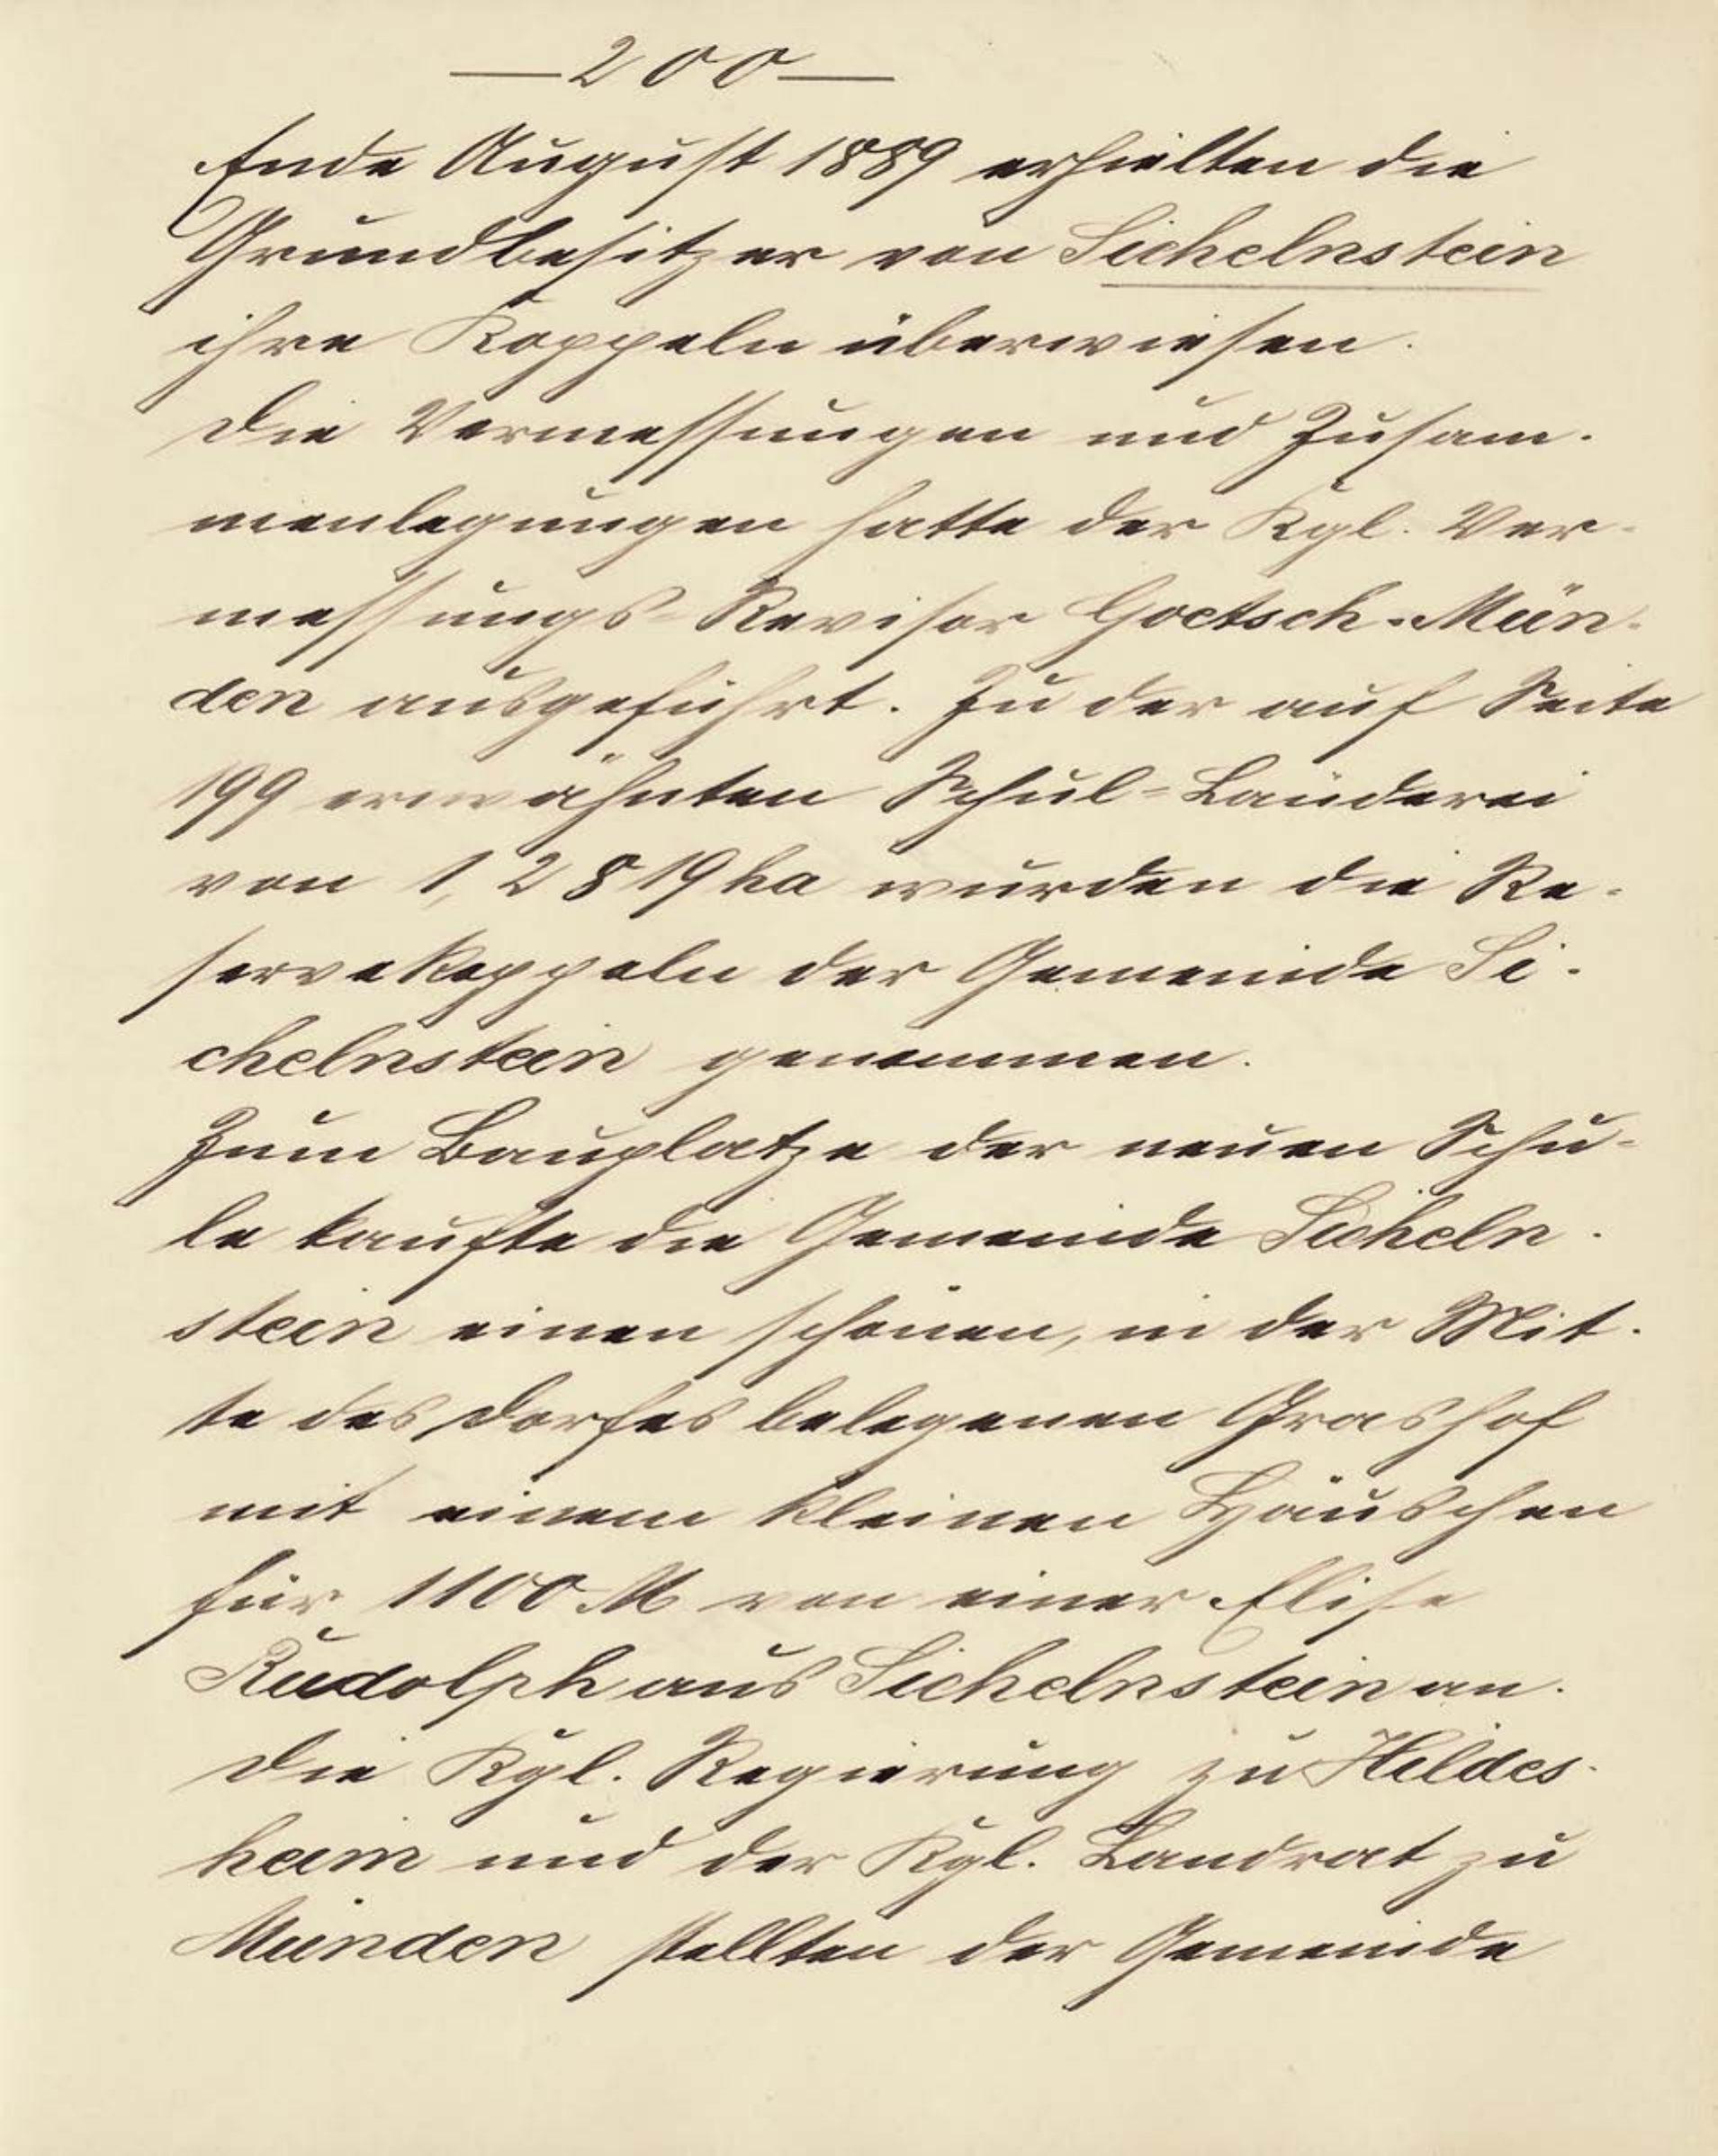 —200—
Ende August 1889 erhielten die
Grundbesitzer von Sichelnstein
ihre Koppeln überwiesen.
Die Vermessungen und Zusam-
menlegungen hatte der Kgl. Ver-
messungs-Revisor Goetsch-Mün-
den ausgeführt. Zu der auf Seite
199 erwähnten Schul-Länderei
von 1,2819 ha wurden die Re-
servekoppeln der Gemeinde Si-
chelnstein genommen.
Zum Bauplatze der neuen Schu-
le kaufte die Gemeinde Sicheln-
stein einen schönen, in der Mit-
te des Dorfes belegenen Grashof
mit einem kleinen Häuschen
für 1100 M von einer Elise
Rudolph aus Sichelnstein an.
Die Kgl. Regierung zu Hildes-
heim und der Kgl. Landrat zu
Münden stellten der Gemeinde